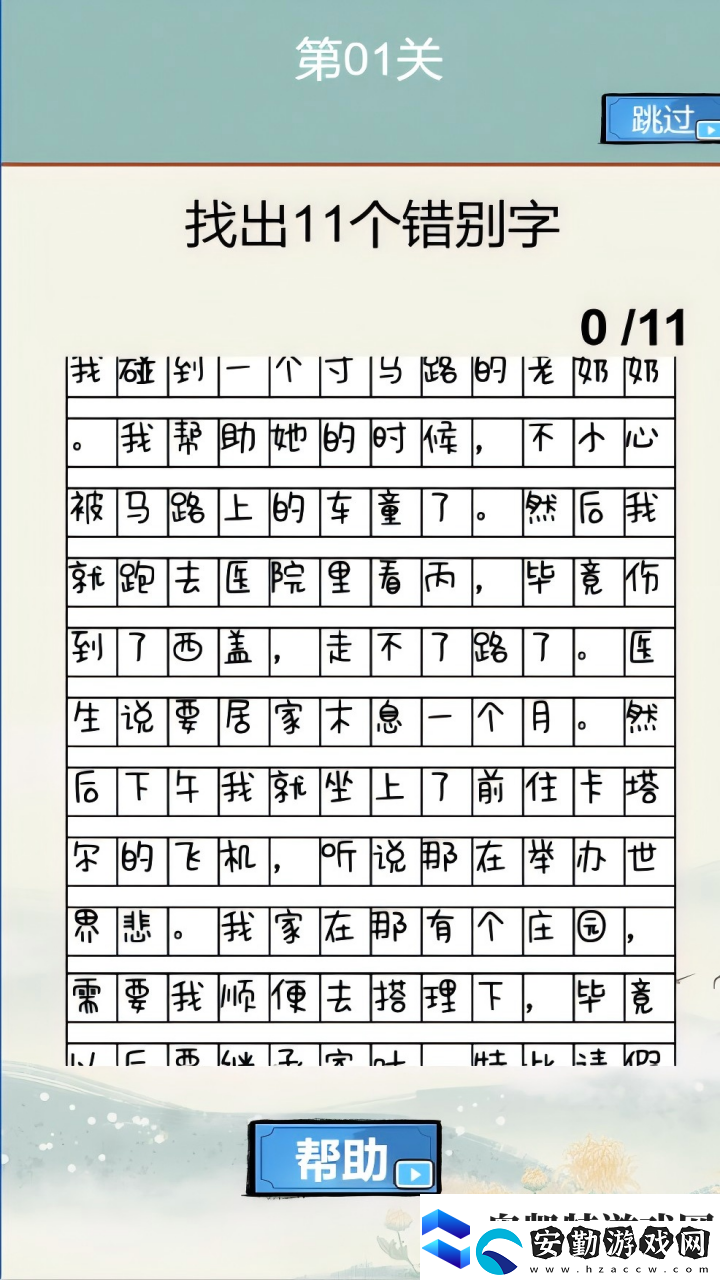 第01关
跳过
找出11个错别字
0 /11
我碰到一个寸马路的老奶奶
。我帮助她的时候，不小心
被马路上的车童了。然后我
就跑去医院里看丙，毕竟伤
到了西盖，走不了路了。医
生说要居家木息一个月。然
后下午我就坐上了前住卡塔
尔的飞机，听说那在举办世
界悲。我家在那有个庄园，
需要我顺便去搭理下，毕竟
帮助
安勤游戏网
www.hzaccw.com